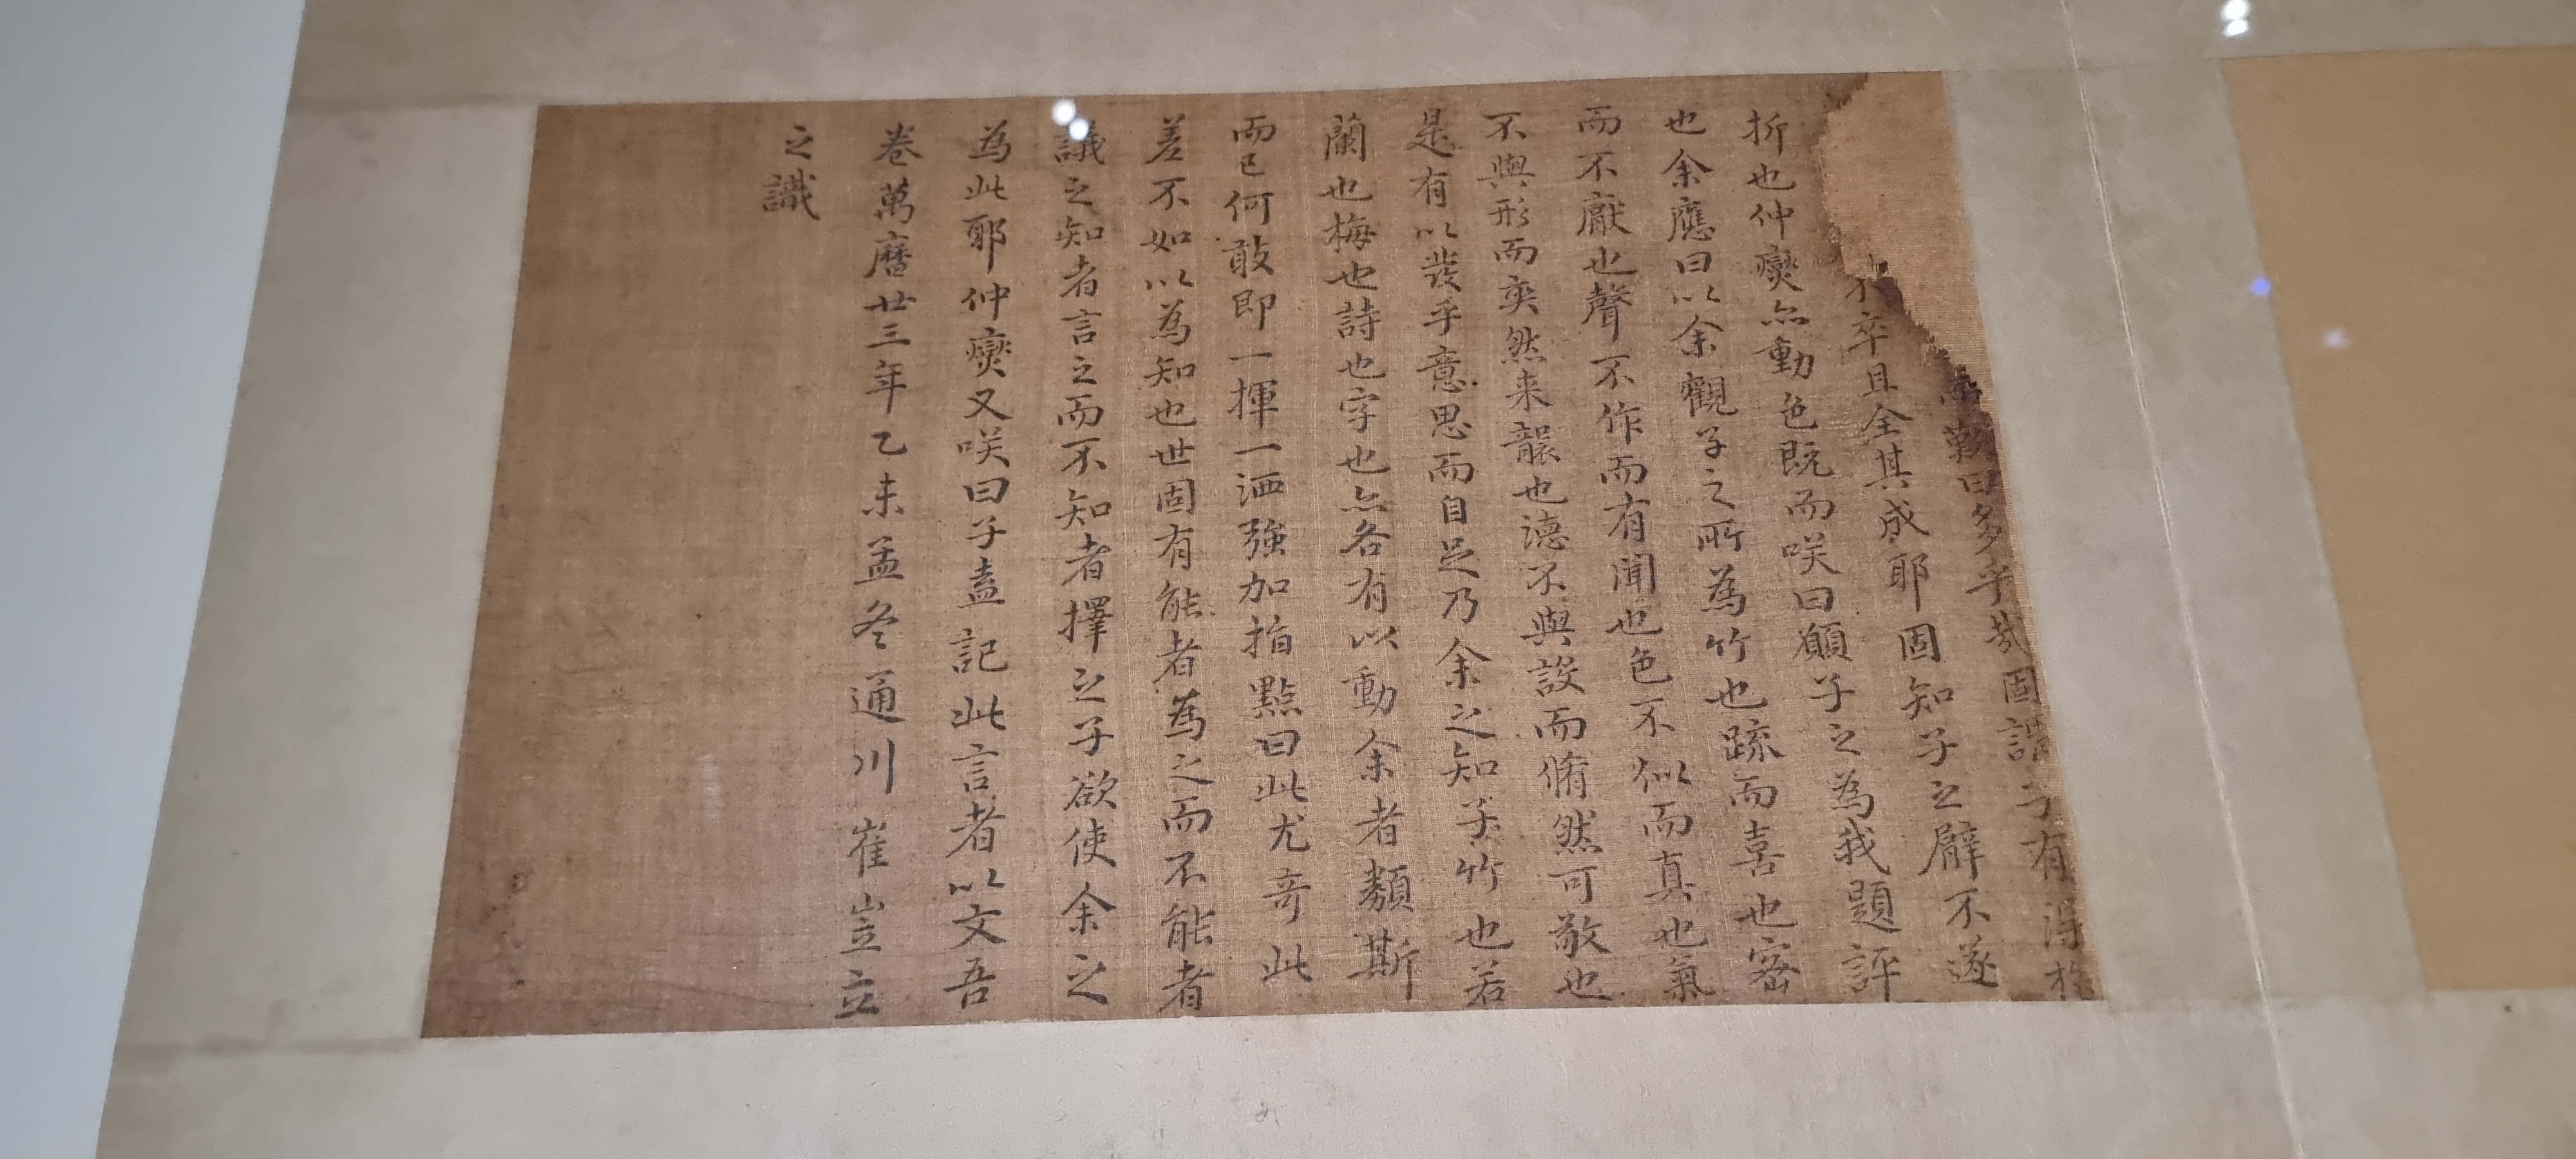 歎曰多乎哉固謂子有得於
卒且全其成耶固知子之辟不遂
折也仲燮亦動色既而咲曰顧子之為我題評
也余應曰以余觀子之所為竹也疏而喜也密
而不厭也聲不作而有聞也色不似而真也氣
不與形而奕然来襲也德不與設而脩然可敬也
是有以發乎意思而自足乃余之知子竹也若
蘭也梅也詩也字也亦各有以動余者類斯
而已何敢即一揮一洒強加指點曰此尤奇此
差不如以為知也世固有能者為之而不能者
議之知者言之而不知者擇之子欲使余之
為此耶仲燮又咲曰子盍記此言者以文吾
卷萬曆廿三年乙未孟冬通川崔岦立
之識